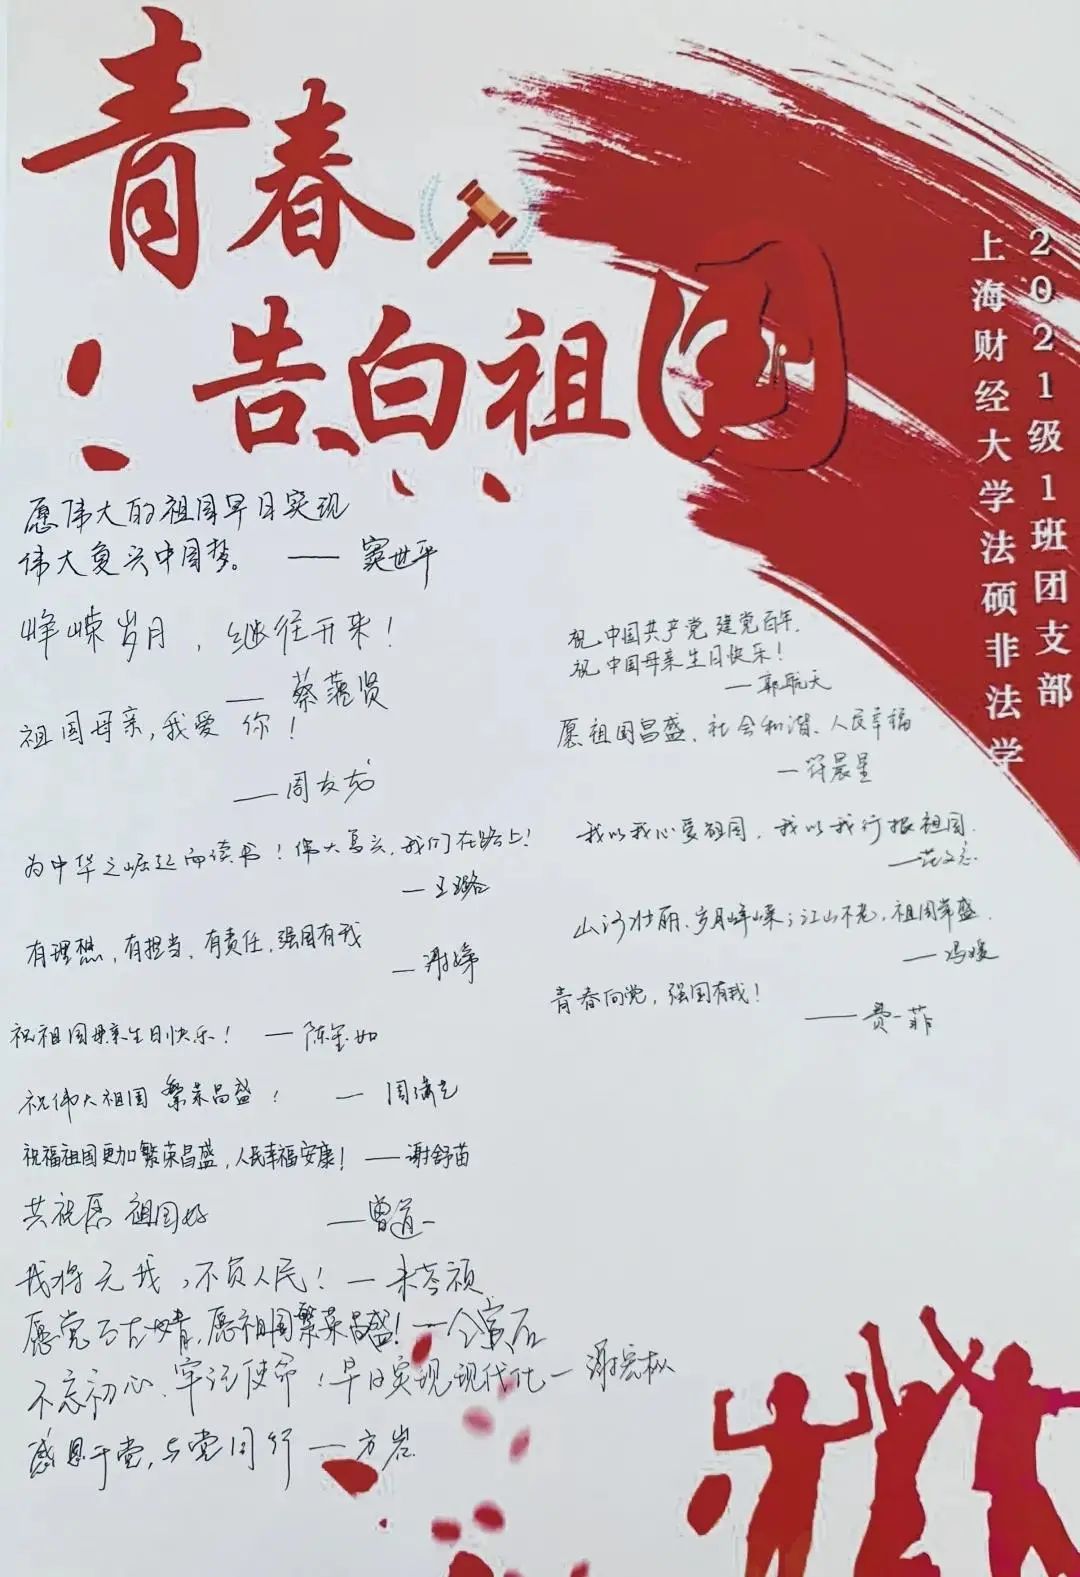 青春
告白祖国
2021级1班团支部
上海财经大学法硕非法学
愿伟大的祖国早日实现
伟大复兴中国梦。 —— 窦世平
峥嵘岁月，继往开来！
—— 蔡蕴贤
祖国母亲，我爱你！
—— 周友龙
为中华之崛起而读书！伟大复兴，我们在路上！
— 王璐
有理想，有担当，有责任，强国有我
— 谢婷
祝祖国母亲生日快乐！ — 陈如
祝伟大祖国繁荣昌盛！ — 周
祝福祖国更加繁荣昌盛，人民幸福安康！ —— 谢舒苗
共祝愿 祖国好 —— 曾道一
我将无我，不负人民！ — 朱芩颀
愿党正古婧，愿祖国繁荣昌盛！ —
不忘初心、牢记使命！早日实现现代化 — 谢宏
感恩于党，与党同行 — 方岩
祝中国共产党建党百年.
祝中国母亲生日快乐！
— 郭航天
愿祖国昌盛、社会和谐、人民幸福
— 符晨星
我以我心爱祖国，我以我行报祖国.
— 范文
山河壮丽、岁月峥嵘；江山不老，祖国常盛.
— 冯媛
青春向党，强国有我！
—— 费一菲